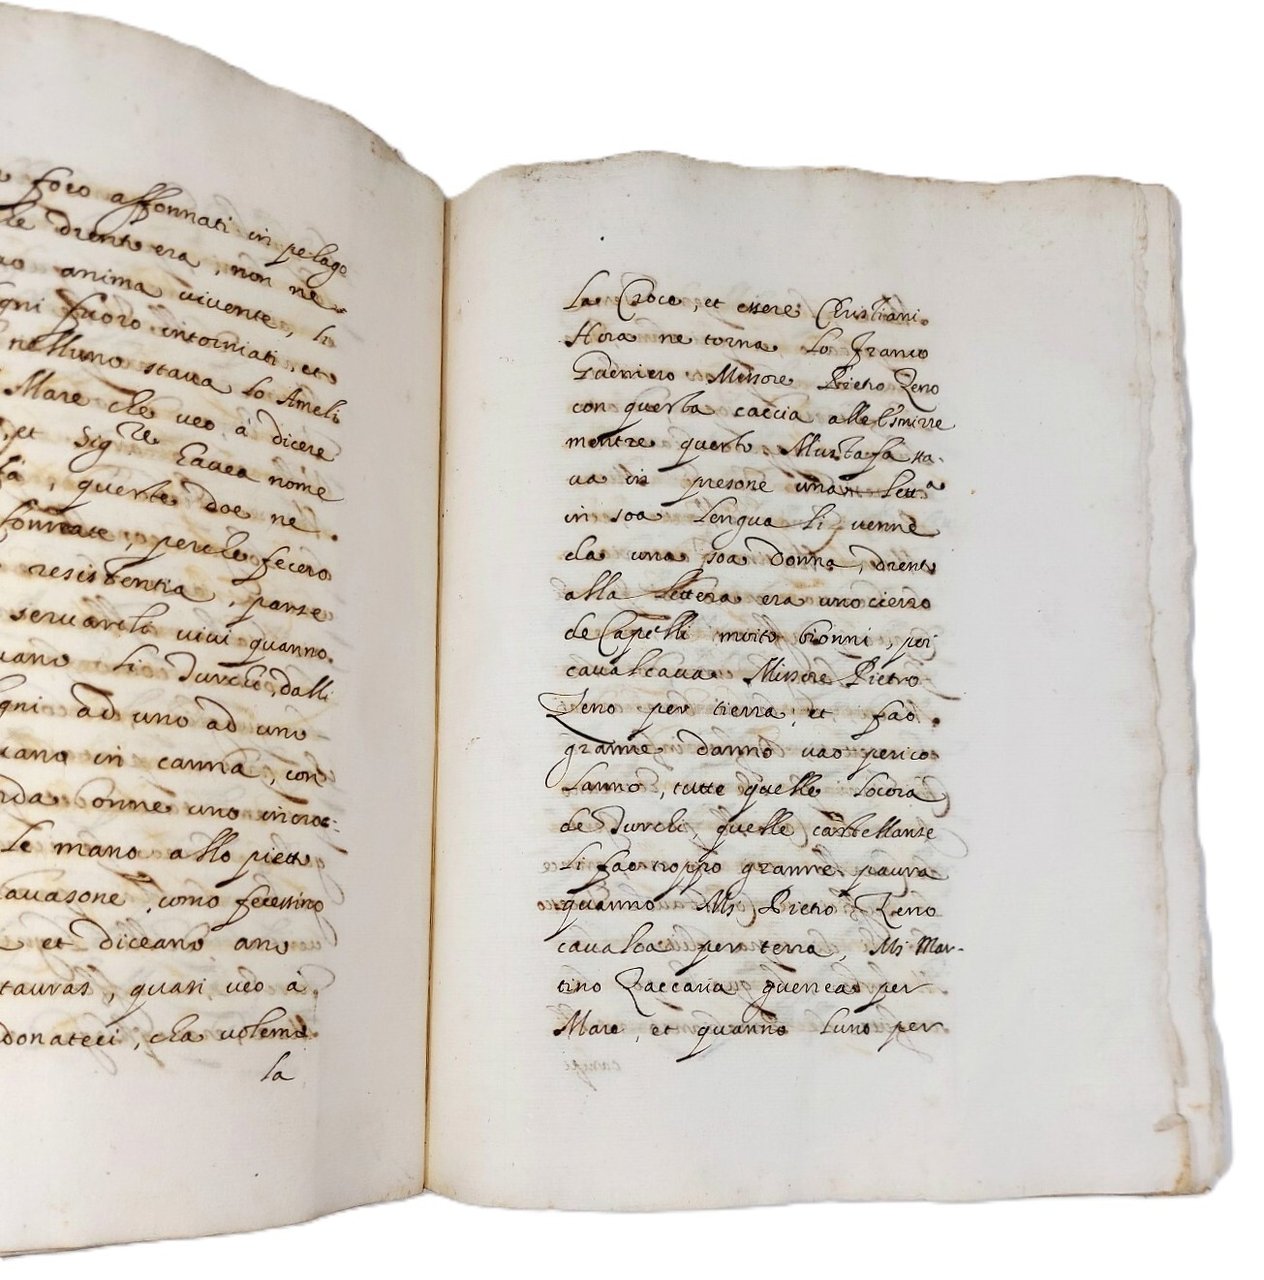 foco affonnati in pelago
le drento era, non ne
anima vivente, li
gni fuoro intorniati, et
nelluno staua lo Ameli
Mare che veo à dicere
et Sigre Hauea nome
queste doe ne
perche fecero
resistentia, parze
seruareli viui quanno
li Turchi, dalli
gni ad uno ad uno
uano in canna, con
rda Conne uno incroc-
le mano allo piett
auasone, como fecessino
et diceano ano
tauras, quasi veo à
donateci, cha volemo
la
la Croce, et essere Christiani.
Hora ne torna lo franco
Guerriero Missore Pietro Zeno
con questa caccia alle Esmirre
mentre questo Mustafa sta-
ua in presone una lettª
in soa lengua li venne
da una soa Donna, drento
alla lettera era uno cierro
de Capelli muito bionni, poi
caualcaua Missore Pietro
Zeno per tierra, et fao
granne danno vao perico
lanno, tutte quelle locora
de Turchi, quelle castellanse
li fao troppo granne paura
quanno Ms Pietro Zeno
caualca per terra, Ms Mar-
tino Zaccaria guerrea per
Mare, et quanno luno per